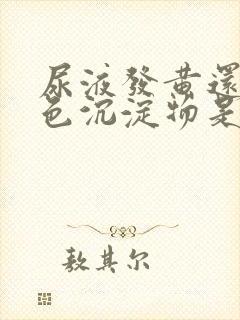 尿液發黄還
色沉淀物是
敖其尔